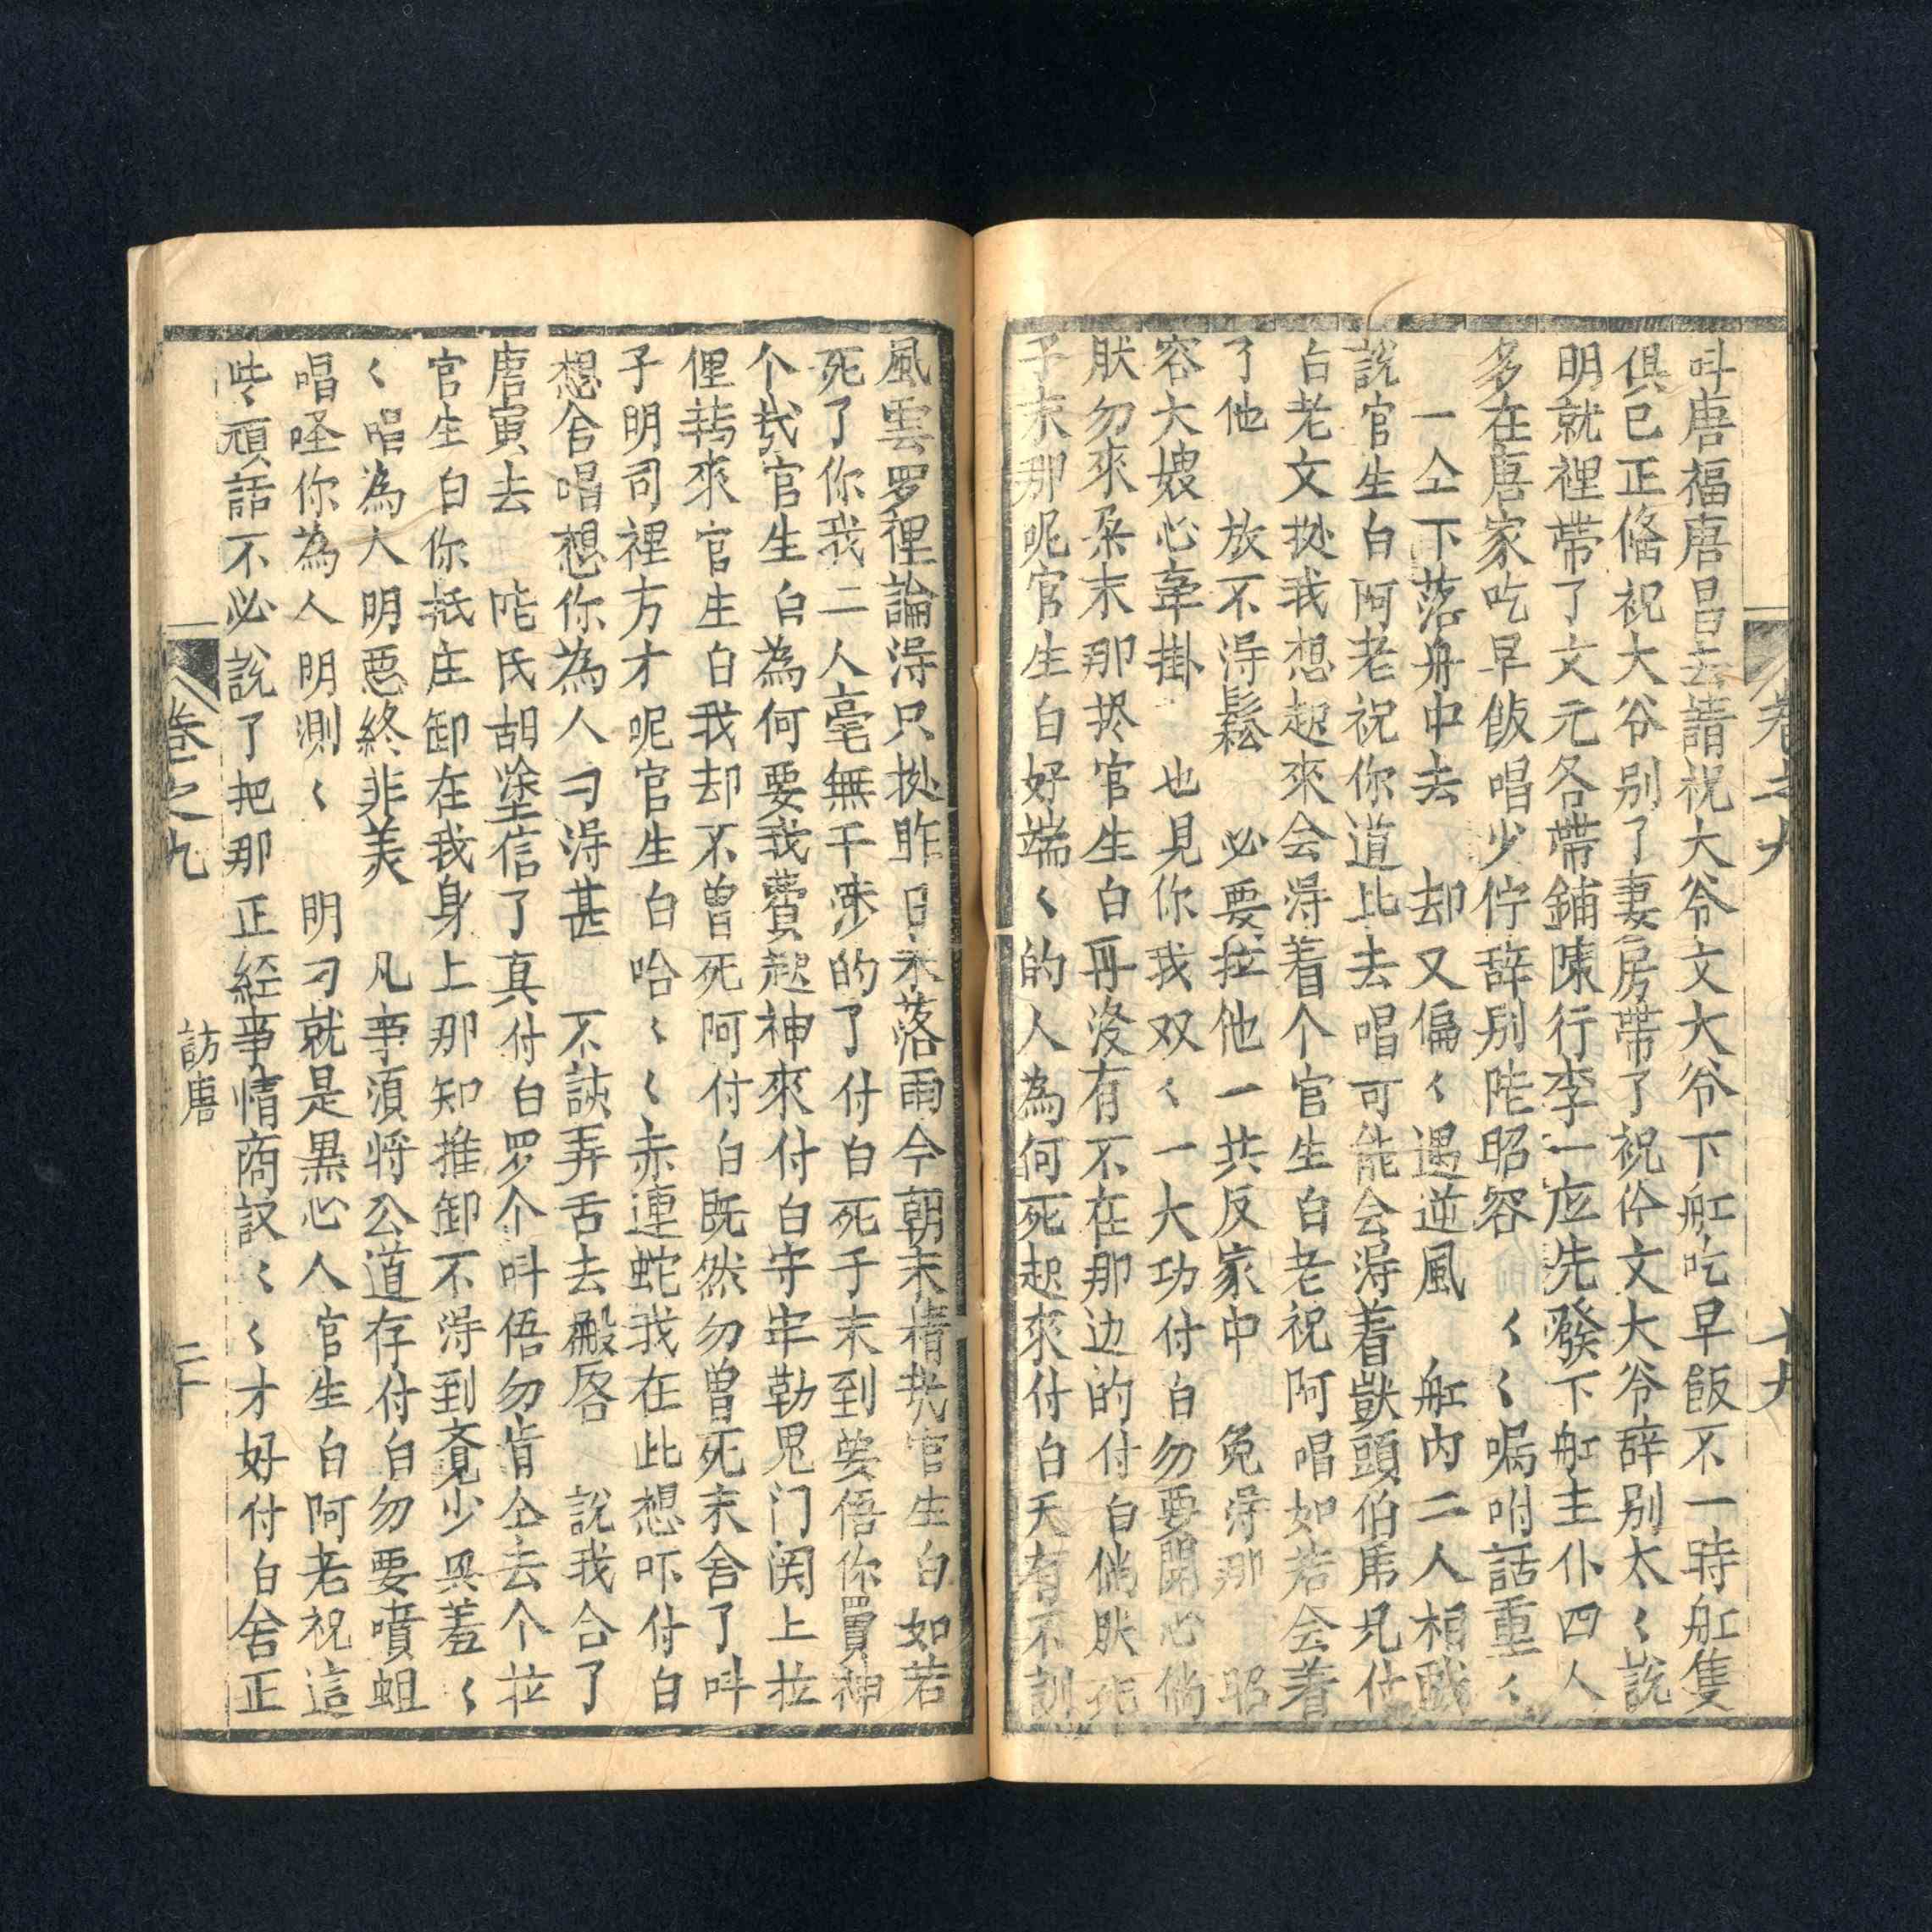 卷之九
十九
叫唐福唐昌去請祝大爷文大爷下舡吃早飯不一時舡隻
俱已正俻祝大爷别了妻房帶了祝伶文大爷辞别太〻說
明就裡帶了文元各帶鋪陳行李一应先發下舡主仆四人
多在唐家吃早飯唱少佇辞别陸昭容 〻〻嘱咐話重〻
一仝下落舟中去 却又偏〻遇逆風 舡内二人相戯
說官生白阿老祝你道比去唱可能会淂着獃頭伯虎兄付
白老文挞我想起來会淂着个官生白老祝阿唱如若会着
了他 放不淂鬆 必要拉他一共反家中 免淂那 昭
容大嫂心牽掛 也見你我双〻一大功付白勿要開心倘
肰勿來朶末那拺官生白再没有不在那边的付白倘肰死
子末那呢官生白好端〻的人為何死起來付白天有不測
風雲罗裡論淂只挞昨日未落雨今朝末情㧯官生白如若
死了你我二人毫無干涉的了付白死于末到要悟你買神
个㦲官生白為何要我費起神來付白守牢勒鬼门関上拉
俚转來官生白我却不曽死阿付白既然勿曽死末舍了叫
子明司裡方才呢官生白哈〻〻赤連蛇我在此想吓付白
想舍唱想你為人刁淂甚 不該弄舌去㪇唇 說我合了
唐寅去 陸氏胡塗信了真付白罗个叫㑄勿肯仝去个拉
官生白你抵庄卸在我身上那知推卸不淂到覔少興羞〻
〻唱為人明惡終非美 凡事湏将公道存付白勿要噴蛆
唱怪你為人明測〻 明刁就是黒心人官生白阿老祝這
些頑話不必說了把那正経事情商議〻〻才好付白舍正
卷之九
訪唐
二十